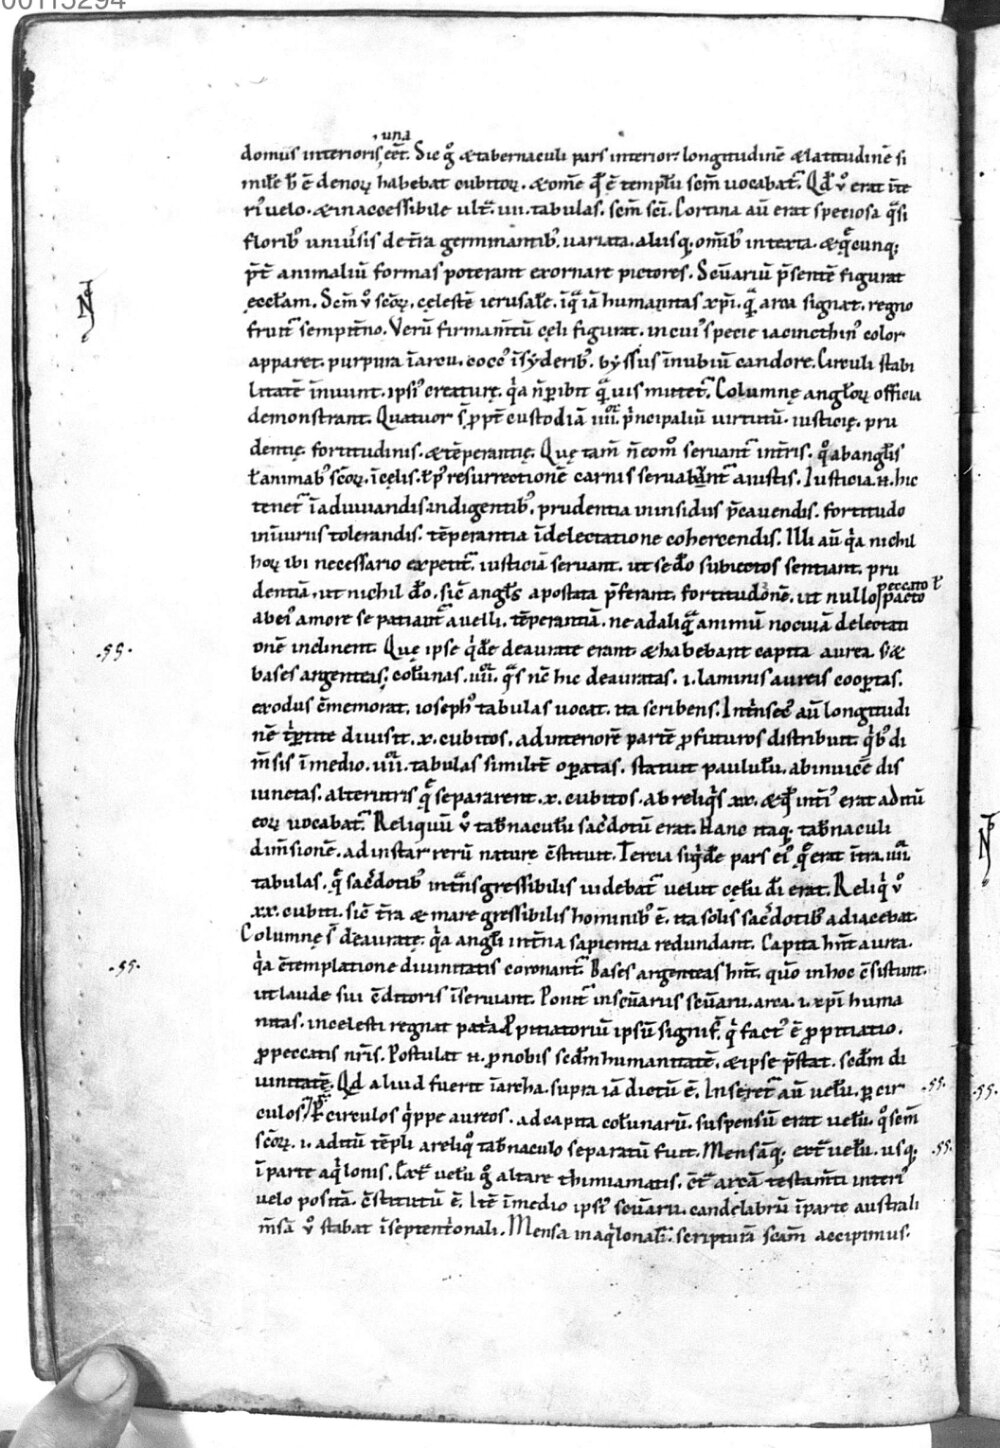 00115294
una
domus interioris eēt. Sic g̊ &tabernaculi pars interior longitudinē &latitudinē si
mile h̄ ē denoꝝ habebat cubitoꝝ. &om̄e qđ ē templū sc̄m uocabat᷑. Qđ v̊ erat īte
ri᷒ uelo. &inaccessibile ult᷑. uii. tabulas. sc̄m sc̄i. Cortina aū erat speciosa q̄si
florib᷒ uniūsis det̄ra germinantib᷒. uariata. aliisq;. om̄ib᷒ intexta. &q̄cunq;
p̄t̄ animaliū formas poterant exornare pictores. Scūariū p̄sentē figurat
ęccłam. Sc̄m v̊ sc̄oꝝ. cęlestē ierusalē. īq̄ iā humanitas xp̄i. q̄ arca signat. regno
fruit᷑ sempit̄no. Verū firmam̄tū cęli figurat. incui᷒ specie iacincthin᷒ color
apparet. purpura īarcu. cocc᷒ īsyderib᷒. byssus īnubiū candore. Circuli stabi
litatē īnuunt. ipsi᷒ creaturę. q̇a n̄ p̄ibit q̄ uis mutet᷑. Columnę angłoꝝ officia
demonstrant. Quatuor s̄ ꝓpt̄ custodiā iiii. ṗncipaliū uirtutū. iusticię. pru
dentię. fortitudinis. &tēperantię. Quę tam̄ n̄ eom̊ seruant᷑ int̄ris. q̊ abangłis
ł animab᷒ sc̄oꝝ. īcęlis. ł p᷒ resurrectionē carnis seruabunt᷑ aiustis. Iusticia .n. hic
tenet᷑ īadiuuandis indigentib᷒. prudentia ininsidiis p̄cauendis. fortitudo
iniuriis tolerandis. tēperantia īdelectatione cohercendis. Illi aū q̇a nichil
hoꝝ ibi necessario expetit᷑. iusticiā seruant. ut se dō subiectos sentiant. pru
dentiā. ut nichil dō. sic̄ angłs apostata p̄ferant. fortitudinē. ut nullo peccato ł pacto
abei᷒ amore se patiant᷑ auelli. tēperantiā. ne adaliq̄ animū nociuā delectati
onē inclinent. Quę ipse q̇dē deaurate erant. &habebant capita aurea. s; &
.55.
bases argenteas. colūnas. iiii. q̄s n̄c hic deauratas. i. laminis aureis coop̄tas.
exodus c̄memorat. ioseph᷒ tabulas uocat. ita scribens. Inṫnsec᷒ aū longitudi
nē ṫp̄tite diuisit. x. cubitos. adinteriorē partē ꝓfuturos distribuit. q̇b᷒ di
m̄sis īmedio. iiii. tabulas similit̄ op̄atas. statuit paululū. abinuicē dis
iunctas. alterutris q̄ separarent. x. cubitos. ab reliq̇s xx. &qđ inti᷒ erat aditū
eoꝝ uocabat᷑. Reliquū v̊ tab̄naculū sac̄dotū erat. Hanc itaq;. tab̄naculi
dim̄sionē. ad instar rerū nature c̄stituit. Tercia siq̇dē pars ei᷒ q̄ erat īt̄ra. iiii.
tabulas. q̄ sac̄dotib᷒ int̄nsgressibilis uidebat᷑ uelut cęlū di erat. Reliq̇ v̊
xx. cubiti. sic̄ t̄ra & mare gressibilis hominib᷒ ē. ita solis sac̄dotib᷒ adiacebat.
Columnę s̄ deauratę. q̇a angłi int̄na sapientia redundant. Capita hn̄t aurea.
.55.
q̇a c̄templatione diuinitatis coronant᷑. Bases argenteas hn̄t. quō inhoc c̄sistunt.
ut laude sui c̄ditoris īseruiant. Ponit᷑ inscūarius scūarii. arca. i. xp̄i huma
nitas. incelesti regnat patria. ꝓpitiatoriū ipsū signif. q̇ fact᷒ ē ꝓpitiatio.
ꝓpeccatis nr̄is. Postulat .n. ꝓnobis scdm̄humanitatē. &ipse p̄stat. scdm̄ di
uinitatē. Qđ aliud fuerit īarcha. supra iā dictū ē. Inseret᷑ aū uelū. ꝑ cir .55.
culos. Per circulos q̇ppe aureos. adcapita colūnarū. suspensū erat uelū. q̊ sc̄m
sc̄oꝝ. i. aditū tēpli areliq᷒ tab̄naculo separatū fuit. Mensāq;. ext̄ uelū. usq;. .55.
īparte aq̇lonis. Ext̄ uelū g̊ altare thimiamatis. c̄t̄ arcā testam̄ti interi᷒
uelo positā. c̄stitutū ē. Itē īmedio ipsi᷒ scūarii. candelabrū īparte australi
m̄sā v̊ stabat īseptenṫonali. Mensa inaq̇lonali. scripturā sc̄am accipimus.
.55.